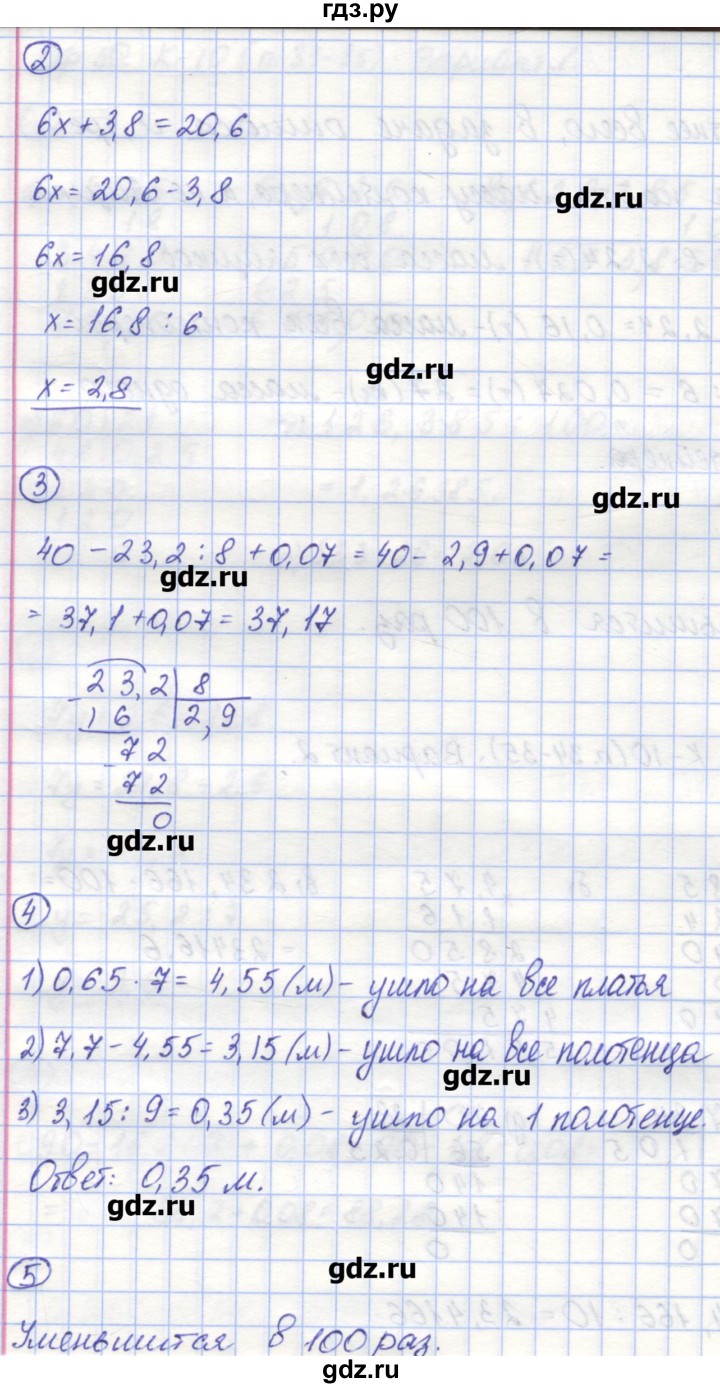 гдз.ру
2
6x + 3,8 = 20,6
6x = 20,6 - 3,8
gdz.ru
6x = 16,8
gdz.ru
x = 16,8 : 6
gdz.ru
x = 2,8
3
gdz.ru
40 - 23,2 : 8 + 0,07 = 40 - 2,9 + 0,07 =
gdz.ru
= 37,1 + 0,07 = 37,17
23,2 | 8
- 16 | 2,9
- 72
72
0
gdz.ru
4
1) 0,65 · 7 = 4,55 (м) - ушло на все платья
2) 7,7 - 4,55 = 3,15 (м) - ушло на все полотенца
gdz.ru
3) 3,15 : 9 = 0,35 (м) - ушло на 1 полотенце.
Ответ: 0,35 м.
gdz.ru
5
gdz.ru
Уменьшится в 100 раз.
gdz.ru